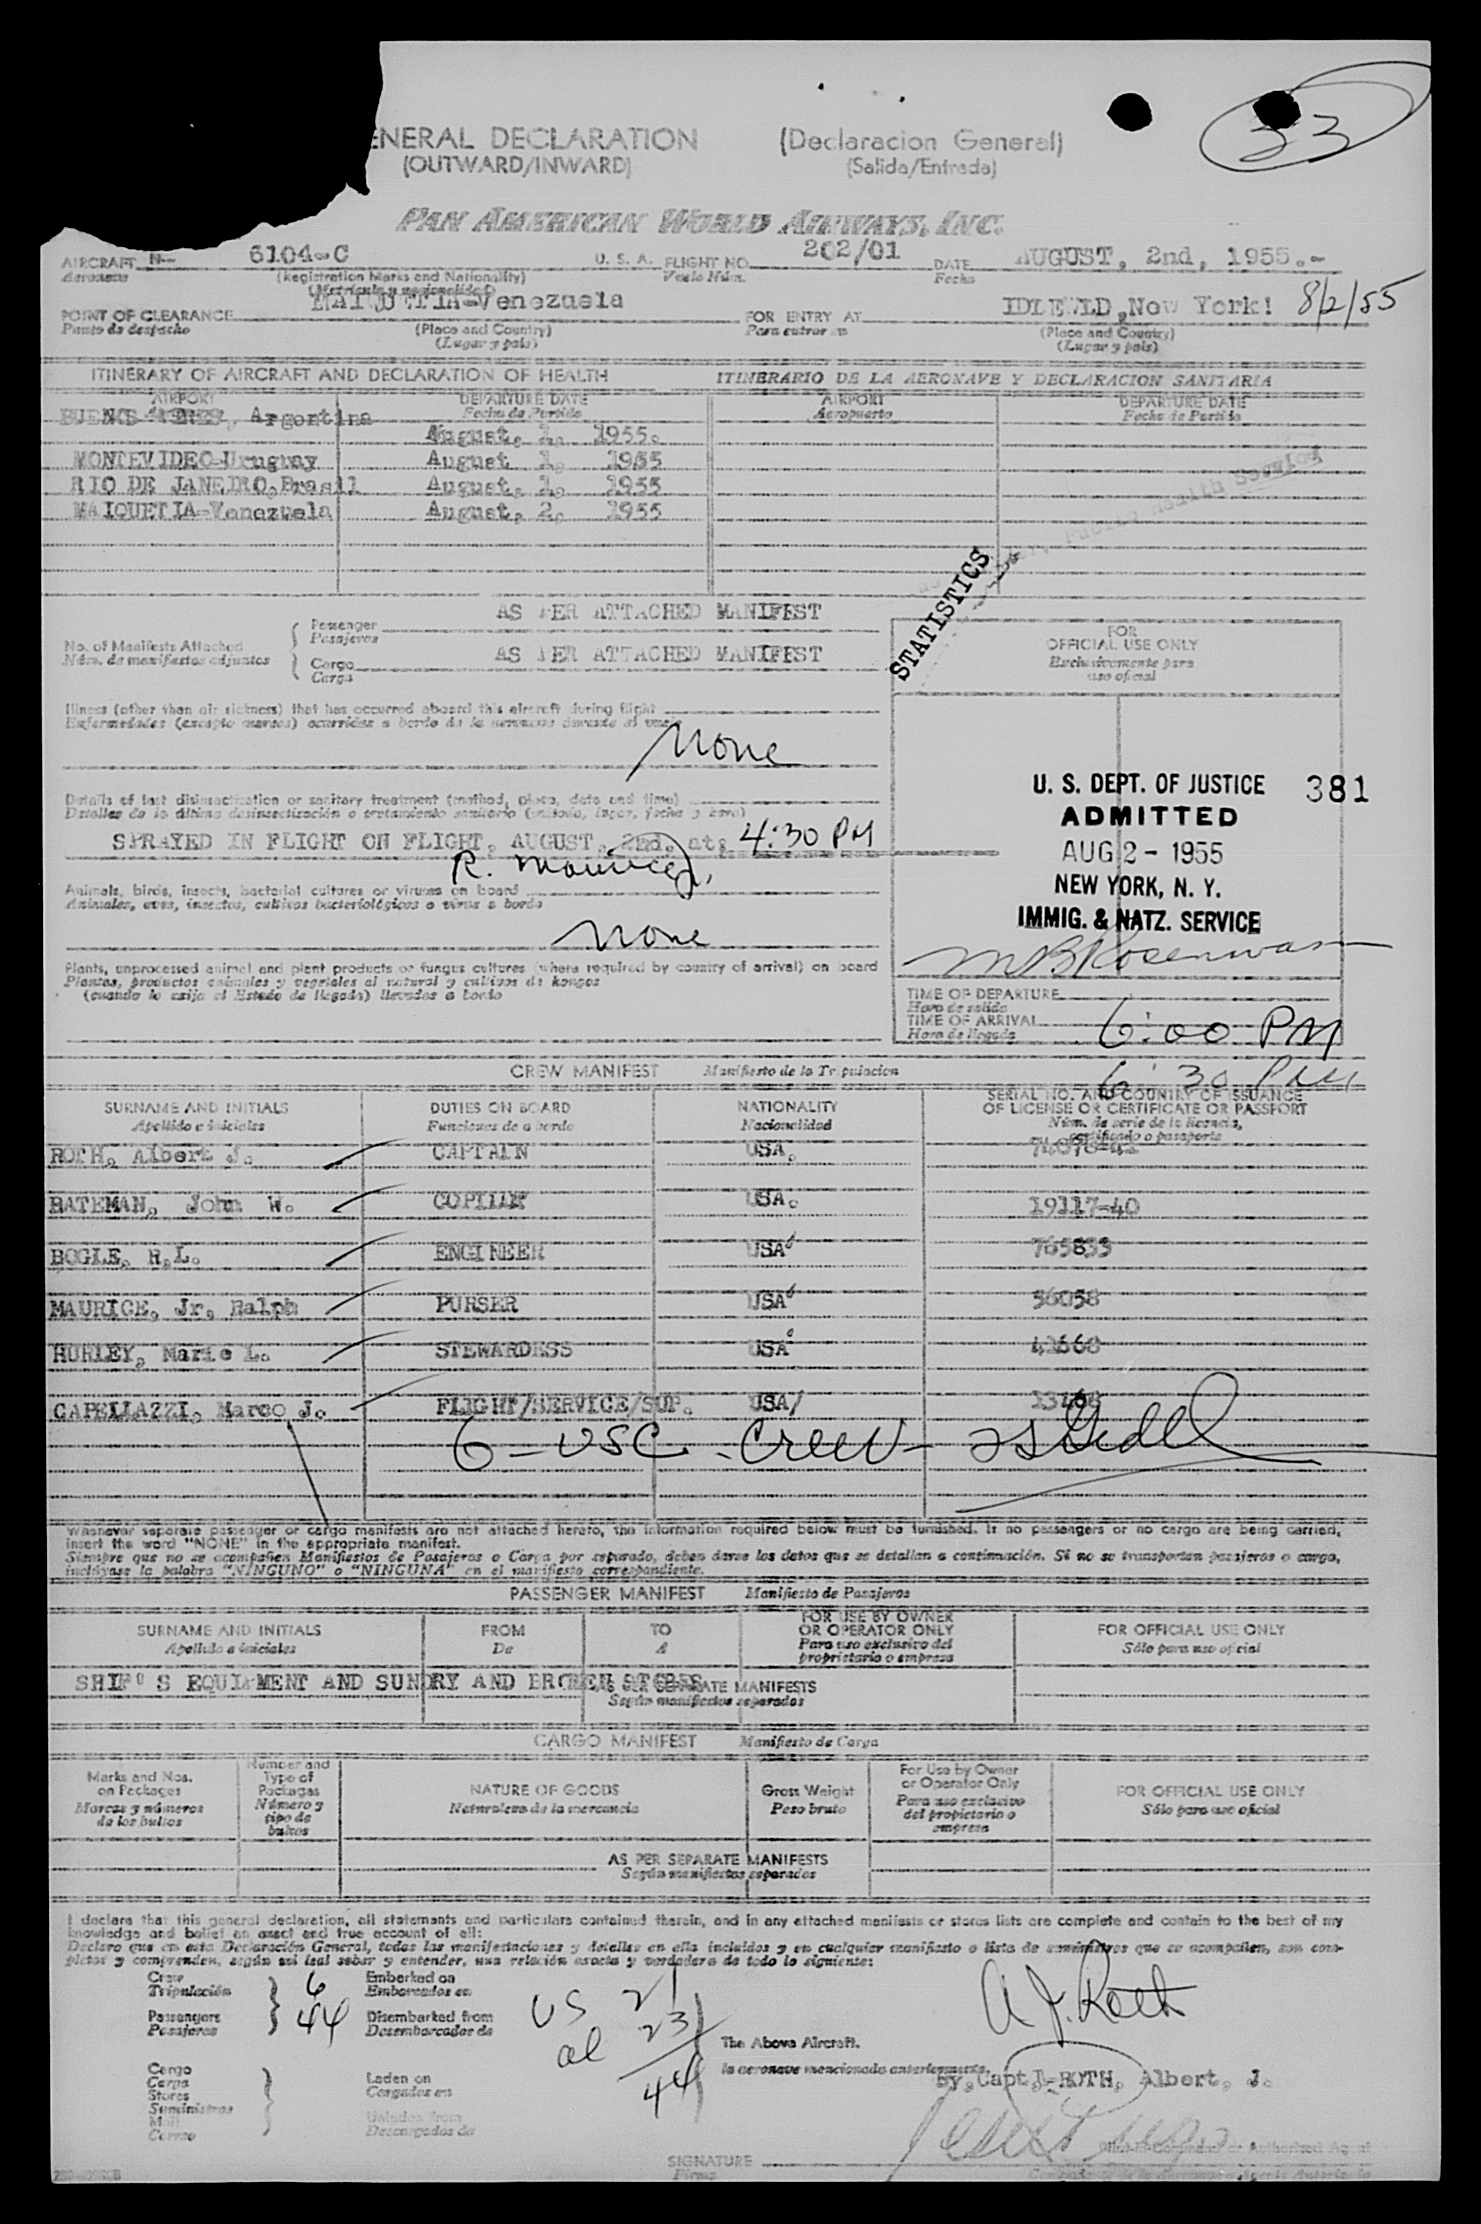 33
ENERAL DECLARATION (Declaracion General)
(OUTWARD/INWARD) (Salida/Entrada)
PAN AMERICAN WORLD AIRWAYS, INC.
AIRCRAFT N- 6104-C U. S. A. FLIGHT NO. 202/01 DATE AUGUST, 2nd, 1955.-
Aeronave (Registration Marks and Nationality) Vuelo Núm. Fecha
(Matricula y nacionalidad)
POINT OF CLEARANCE MAIQUETIA-Venezuela FOR ENTRY AT IDLEWILD, New York! 8/2/55
Punto de despacho (Place and Country) Para entrar en (Place and Country)
(Lugar y pais) (Lugar y pais)
ITINERARY OF AIRCRAFT AND DECLARATION OF HEALTH ITINERARIO DE LA AERONAVE Y DECLARACION SANITARIA
AIRPORT DEPARTURE DATE AIRPORT DEPARTURE DATE
Fecha de Partida Aeropuerto Fecha de Partida
BUENOS AIRES, Argentina August, 1, 1955.
MONTEVIDEO-Uruguay August 1, 1955
RIO DE JANEIRO, Brasil August, 1, 1955
MAIQUETIA-Venezuela August, 2, 1955
Public Health Service
STATISTICS
No. of Manifests Attached
Núm. de manifiestos adjuntos
Passenger AS PER ATTACHED MANIFEST
Pasajeros
Cargo AS PER ATTACHED MANIFEST
Carga
FOR
OFFICIAL USE ONLY
Exclusivamente para
uso oficial
Illness (other than air sickness) that has occurred aboard this aircraft during flight
Enfermedades (excepto mareos) ocurridas a bordo de la aeronave durante el vuelo
None
Details of last disinsectization or sanitary treatment (method, place, date and time)
Detalles de la última desinsectización o tratamiento sanitario (método, lugar, fecha y hora)
SPRAYED IN FLIGHT ON FLIGHT, AUGUST, 2nd, at: 4:30 PM
R. Maurice Jr.
Animals, birds, insects, bacterial cultures or viruses on board
Animales, aves, insectos, cultivos bacteriológicos o virus a bordo
None
Plants, unprocessed animal and plant products or fungus cultures (where required by country of arrival) on board
Plantas, productos animales y vegetales al natural y cultivos de hongos
(cuando lo exija el Estado de llegada) llevados a bordo
U. S. DEPT. OF JUSTICE 381
ADMITTED
AUG 2 - 1955
NEW YORK, N. Y.
IMMIG. & NATZ. SERVICE
TIME OF DEPARTURE
Hora de salida
TIME OF ARRIVAL 6:00 PM
Hora de llegada
6:30 PM
CREW MANIFEST Manifiesto de la Tripulacion
SURNAME AND INITIALS DUTIES ON BOARD NATIONALITY SERIAL NO. AND COUNTRY OF ISSUANCE
OF LICENSE OR CERTIFICATE OR PASSPORT
Apellido e iniciales Funciones de a bordo Nacionalidad Núm. de serie de la licencia,
certificado o pasaporte
ROTH, Albert J. CAPTAIN USA.
BATEMAN, John W. COPILOT USA. 19117-40
BOGLE, R.L. ENGINEER USA 765833
MAURICE, Jr, Ralph PURSER USA 56058
HURLEY, Marie L. STEWARDESS USA 42668
CAPELLAZZI, Marco J. FLIGHT/SERVICE/SUP. USA/ 13168
6 - USC - Crew -
Whenever separate passenger or cargo manifests are not attached hereto, the information required below must be furnished. If no passengers or no cargo are being carried,
insert the word "NONE" in the appropriate manifest.
Siempre que no se acompañen Manifiestos de Pasajeros o Carga por separado, deben darse los datos que se detallan a continuación. Si no se transportan pasajeros o carga,
inclúyase la palabra "NINGUNO" o "NINGUNA" en el manifiesto correspondiente.
PASSENGER MANIFEST Manifiesto de Pasajeros
SURNAME AND INITIALS FROM TO FOR USE BY OWNER
OR OPERATOR ONLY FOR OFFICIAL USE ONLY
Apellido e iniciales De A Para uso exclusivo del
propietario o empresa Sólo para uso oficial
SHIP'S EQUIPMENT AND SUNDRY AND BROKEN STORES
AS PER SEPARATE MANIFESTS
Según manifiestos separados
CARGO MANIFEST Manifiesto de Carga
Marks and Nos.
on Packages
Marcas y números
de los bultos
Number and
Type of
Packages
Número y
tipo de
bultos
NATURE OF GOODS
Naturaleza de la mercancia
Gross Weight
Peso bruto
For Use by Owner
or Operator Only
Para uso exclusivo
del propietario o
empresa
FOR OFFICIAL USE ONLY
Sólo para uso oficial
AS PER SEPARATE MANIFESTS
Según manifiestos separados
I declare that this general declaration, all statements and particulars contained therein, and in any attached manifests or stores lists are complete and contain to the best of my
knowledge and belief an exact and true account of all:
Declaro que en esta Declaración General, todas las manifestaciones y detalles en ella incluidos y en cualquier manifiesto o lista de suministros que se acompañen, son com-
pletos y comprenden, según mi leal saber y entender, una relación exacta y verdadera de todo lo siguiente:
Crew 6 Embarked on
Tripulación Embarcados en
Passengers 44 Disembarked from
Pasajeros Desembarcados de
US 21
al 23
44
The Above Aircraft.
la aeronave mencionada anteriormente.
A J. Roth
By, Capt, J. ROTH, Albert, J.
Cargo
Carga
Stores
Suministros
Mail
Correo
Laden on
Cargados en
Unladen from
Descargados de
SIGNATURE
Firma
Pilot-in-Command or Authorized Agent